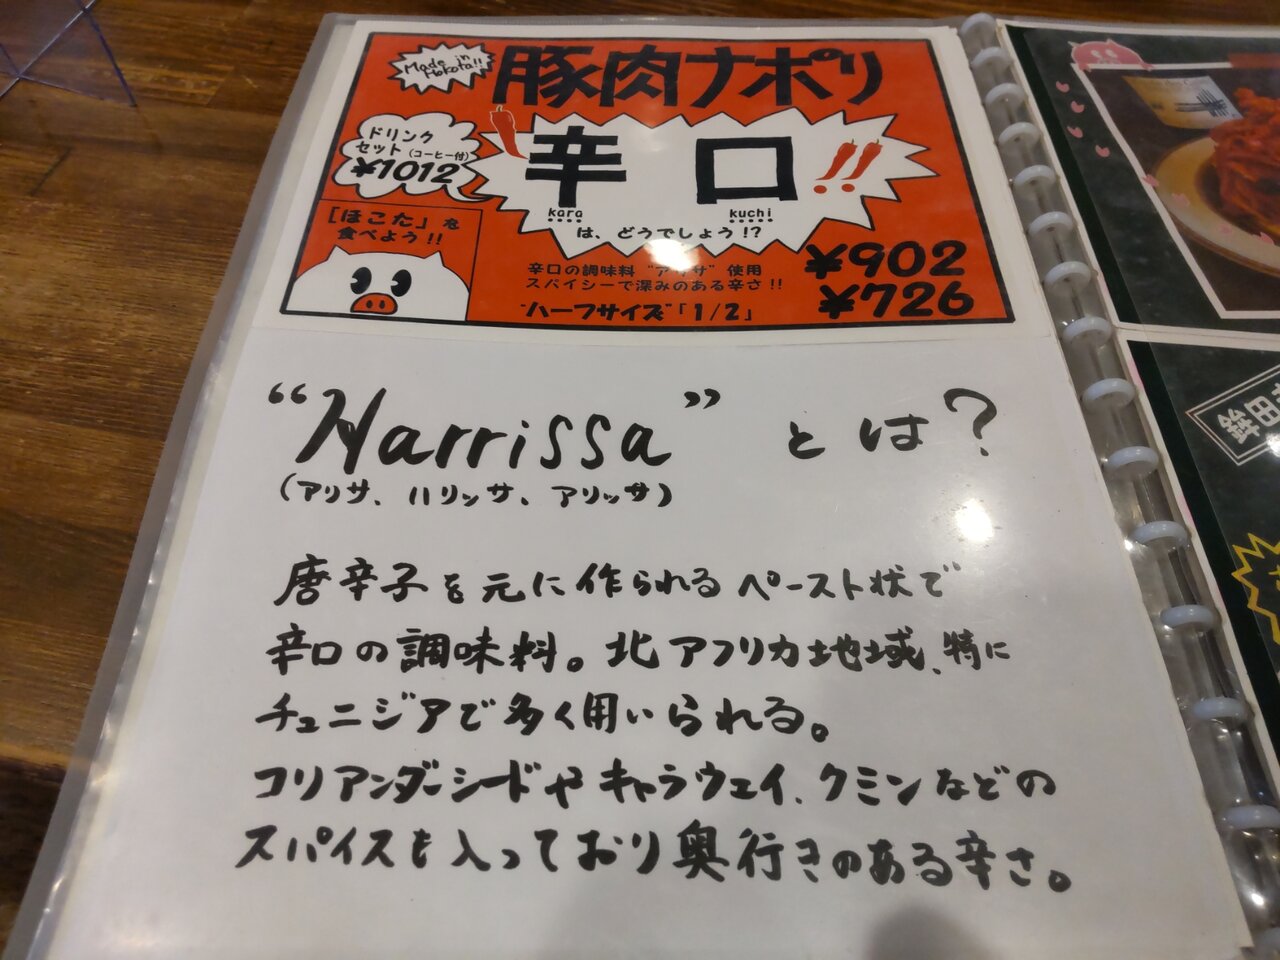 Made in Hokota!!
豚肉ナポリ
ドリンク
セット(コーヒー付)
¥1012
辛口!!
kara kuchi
は、どうでしょう!?
「ほこた」を
食べよう!!
辛口の調味料"アリサ"使用
スパイシーで深みのある辛さ!!
¥902
"ハーフサイズ"「1/2」 ¥726
"Harrissa"とは?
(アリサ、ハリッサ、アリッサ)
唐辛子を元に作られるペースト状で
辛口の調味料。北アフリカ地域、特に
チュニジアで多く用いられる。
コリアンダーシードやキャラウェイ、クミンなどの
スパイスも入っており奥行きのある辛さ。
鉾田